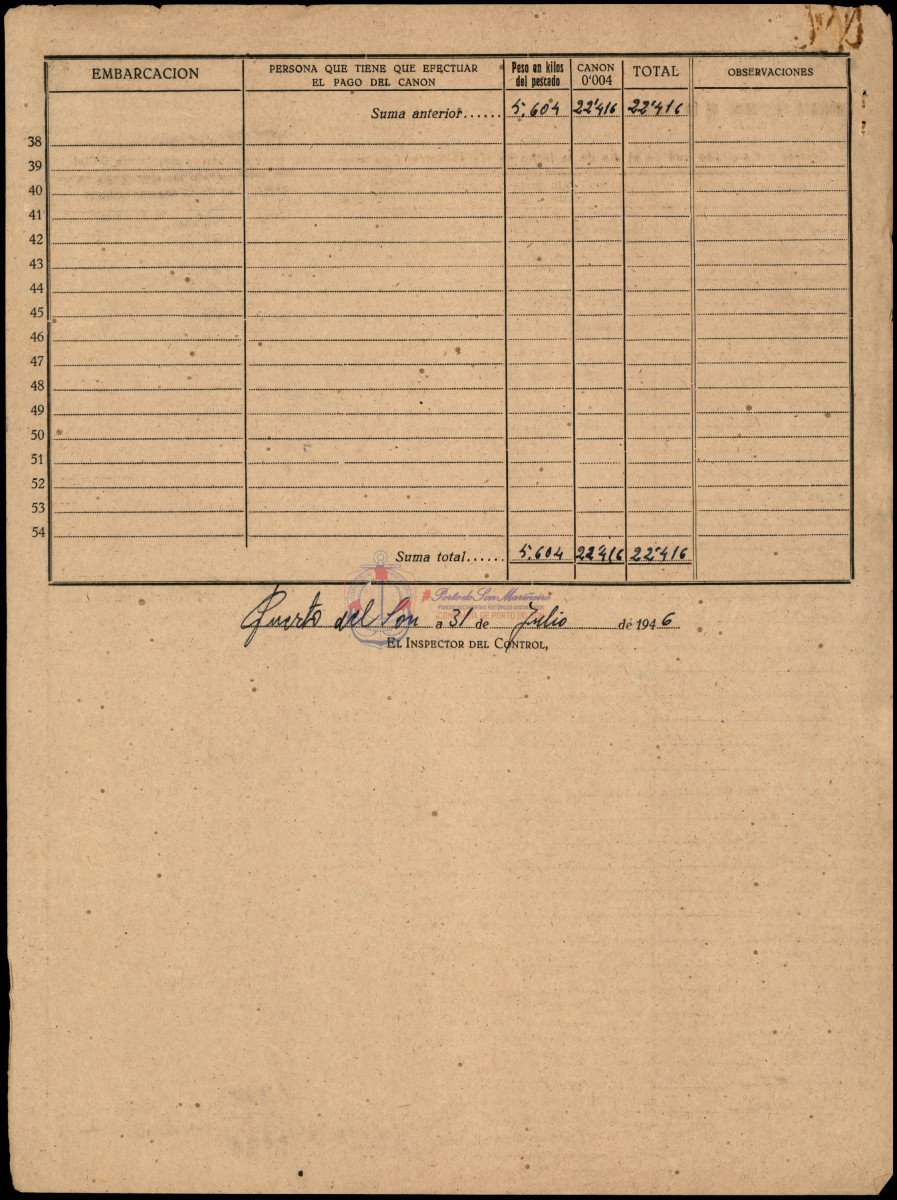 EMBARCACION PERSONA QUE TIENE QUE EFECTUAR EL PAGO DEL CANON Peso en kilos del pescado CANON 0'004 TOTAL OBSERVACIONES
Suma anterior...... 5.604 22'416 22'416
38
39
40
41
42
43
44
45
46
47
48
49
50
51
52
53
54
Suma total...... 5.604 22'416 22'416
Porto do Son Mariñeiro
Puerto del Son a 31 de Julio de 1946
EL INSPECTOR DEL CONTROL,